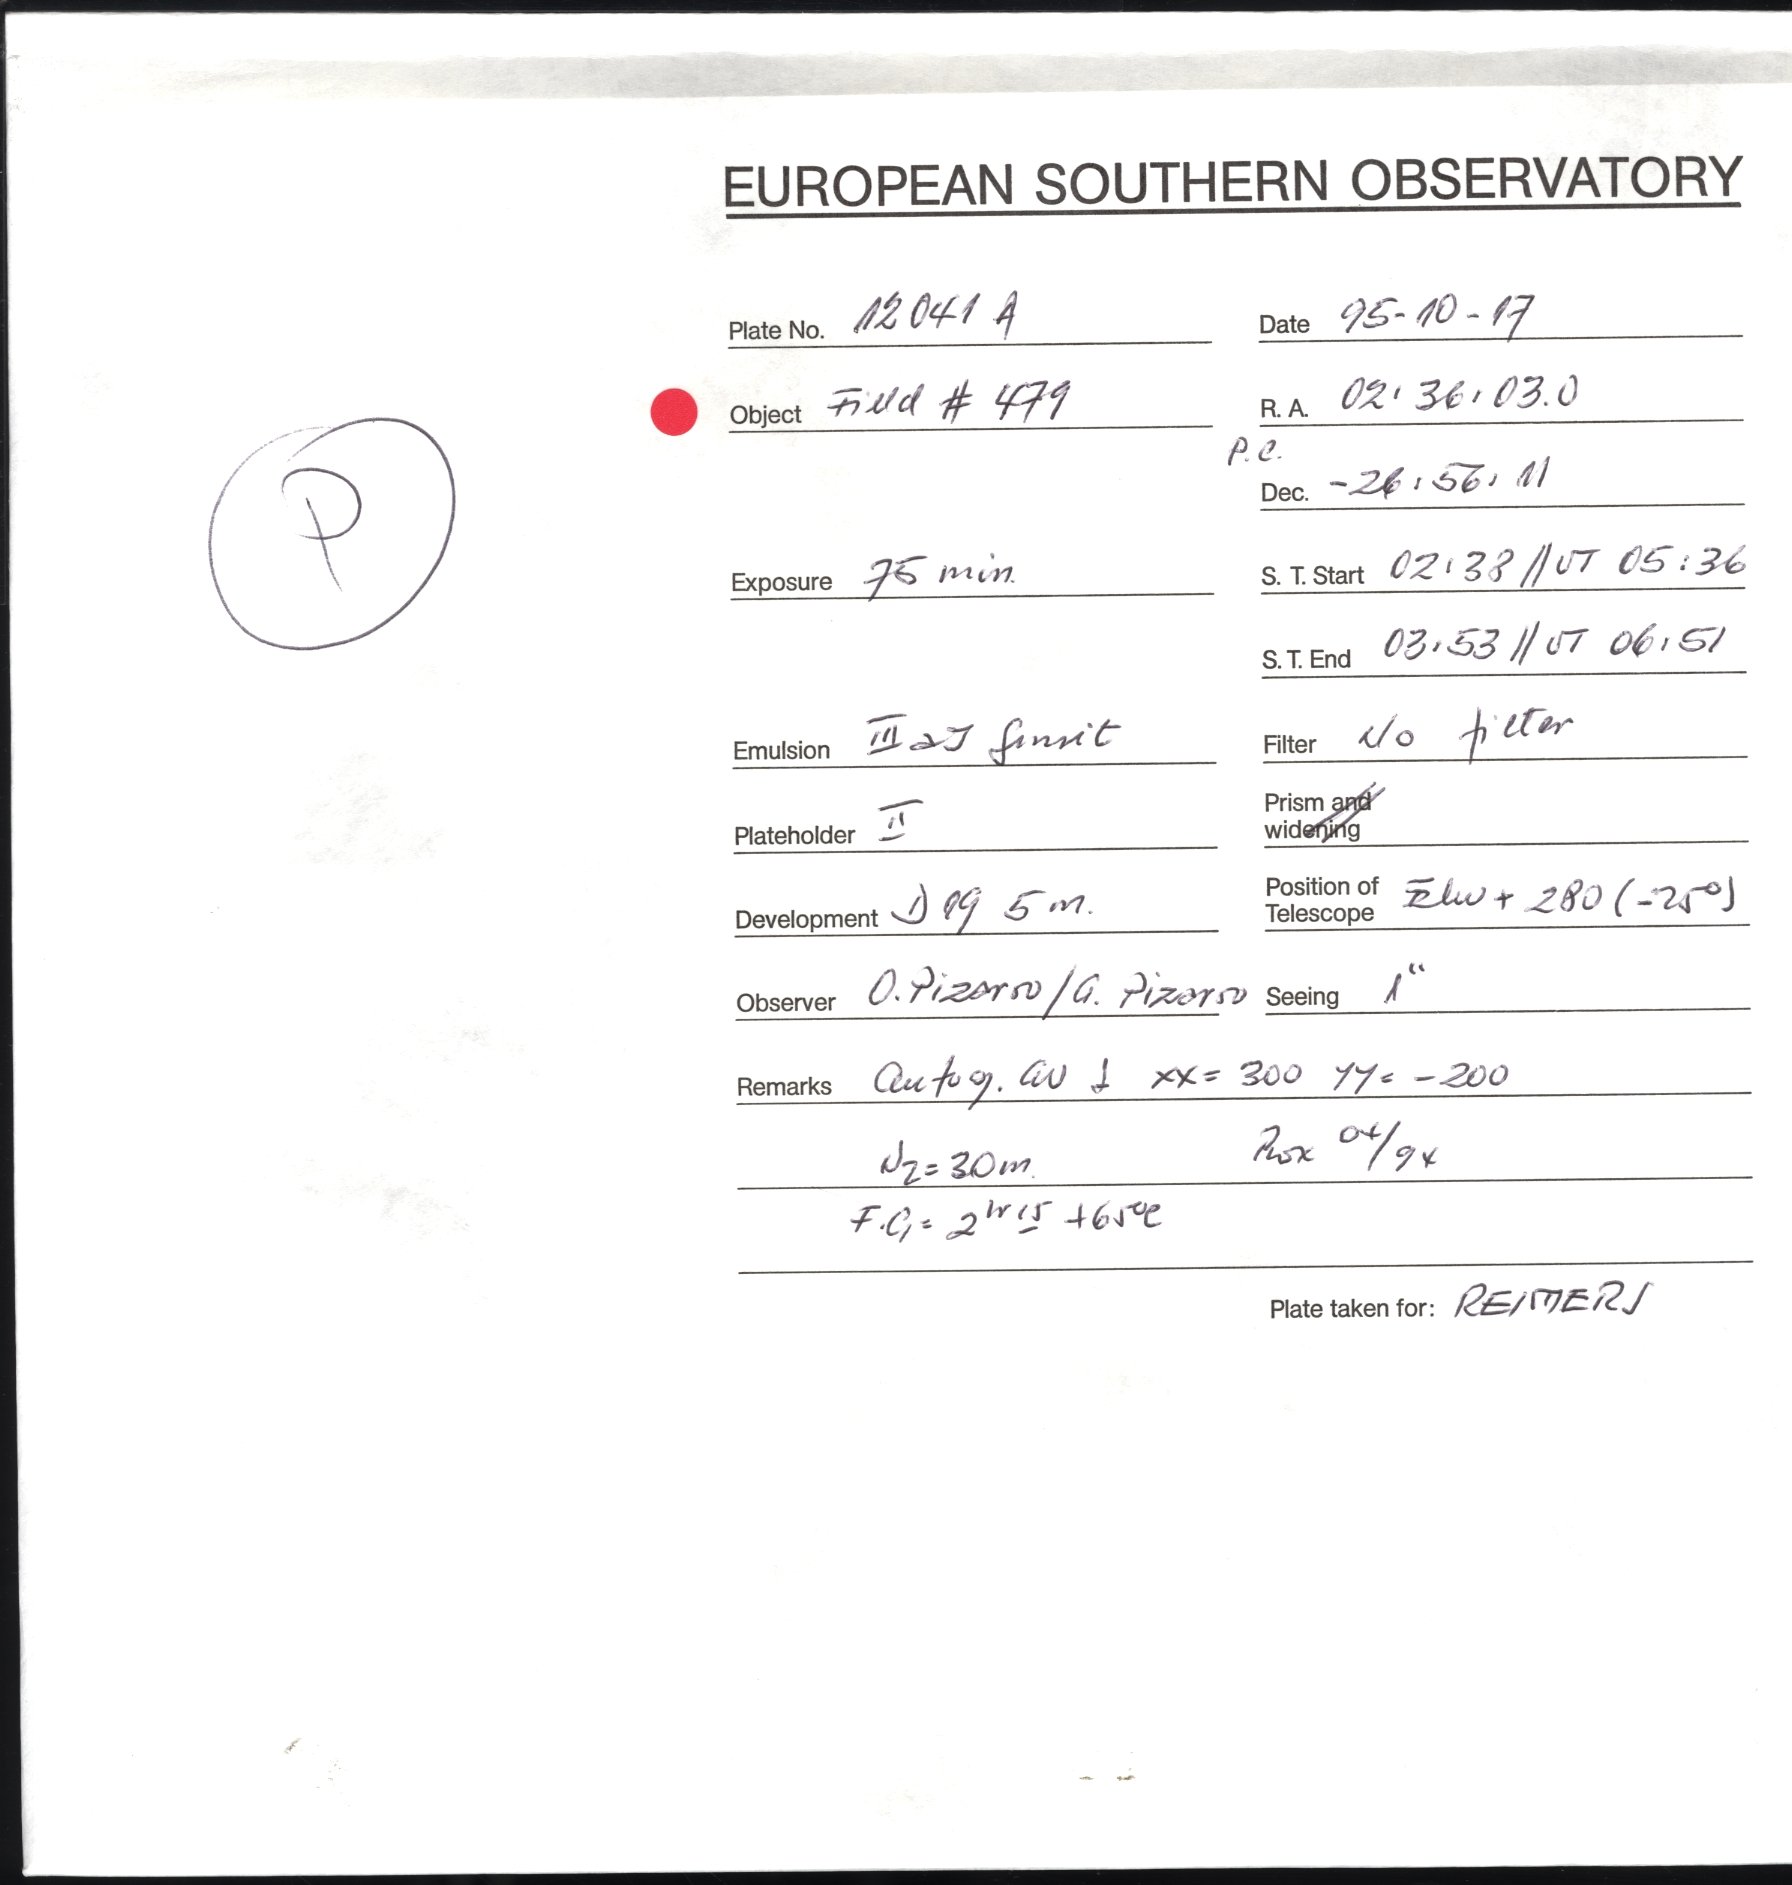 EUROPEAN SOUTHERN OBSERVATORY
Plate No. 12041 A Date 95-10-17
Object Field # 479 R. A. 02:36:03.0
P.C.
Dec. -26:56:11
P
Exposure 75 min. S. T. Start 02:38 // UT 05:36
S. T. End 03:53 // UT 06:51
Emulsion III aJ Filter No filter
Plateholder II Prism and
widening
Development D 19 5 m. Position of
Telescope + 280 (-25°)
Observer O. Pizarro / G. Pizarro Seeing 1"
Remarks Autog. xx= 300 yy= -200
N2 = 30 m. 04/94
F.G. = 2hr 15 +65°C
Plate taken for: REIMERS